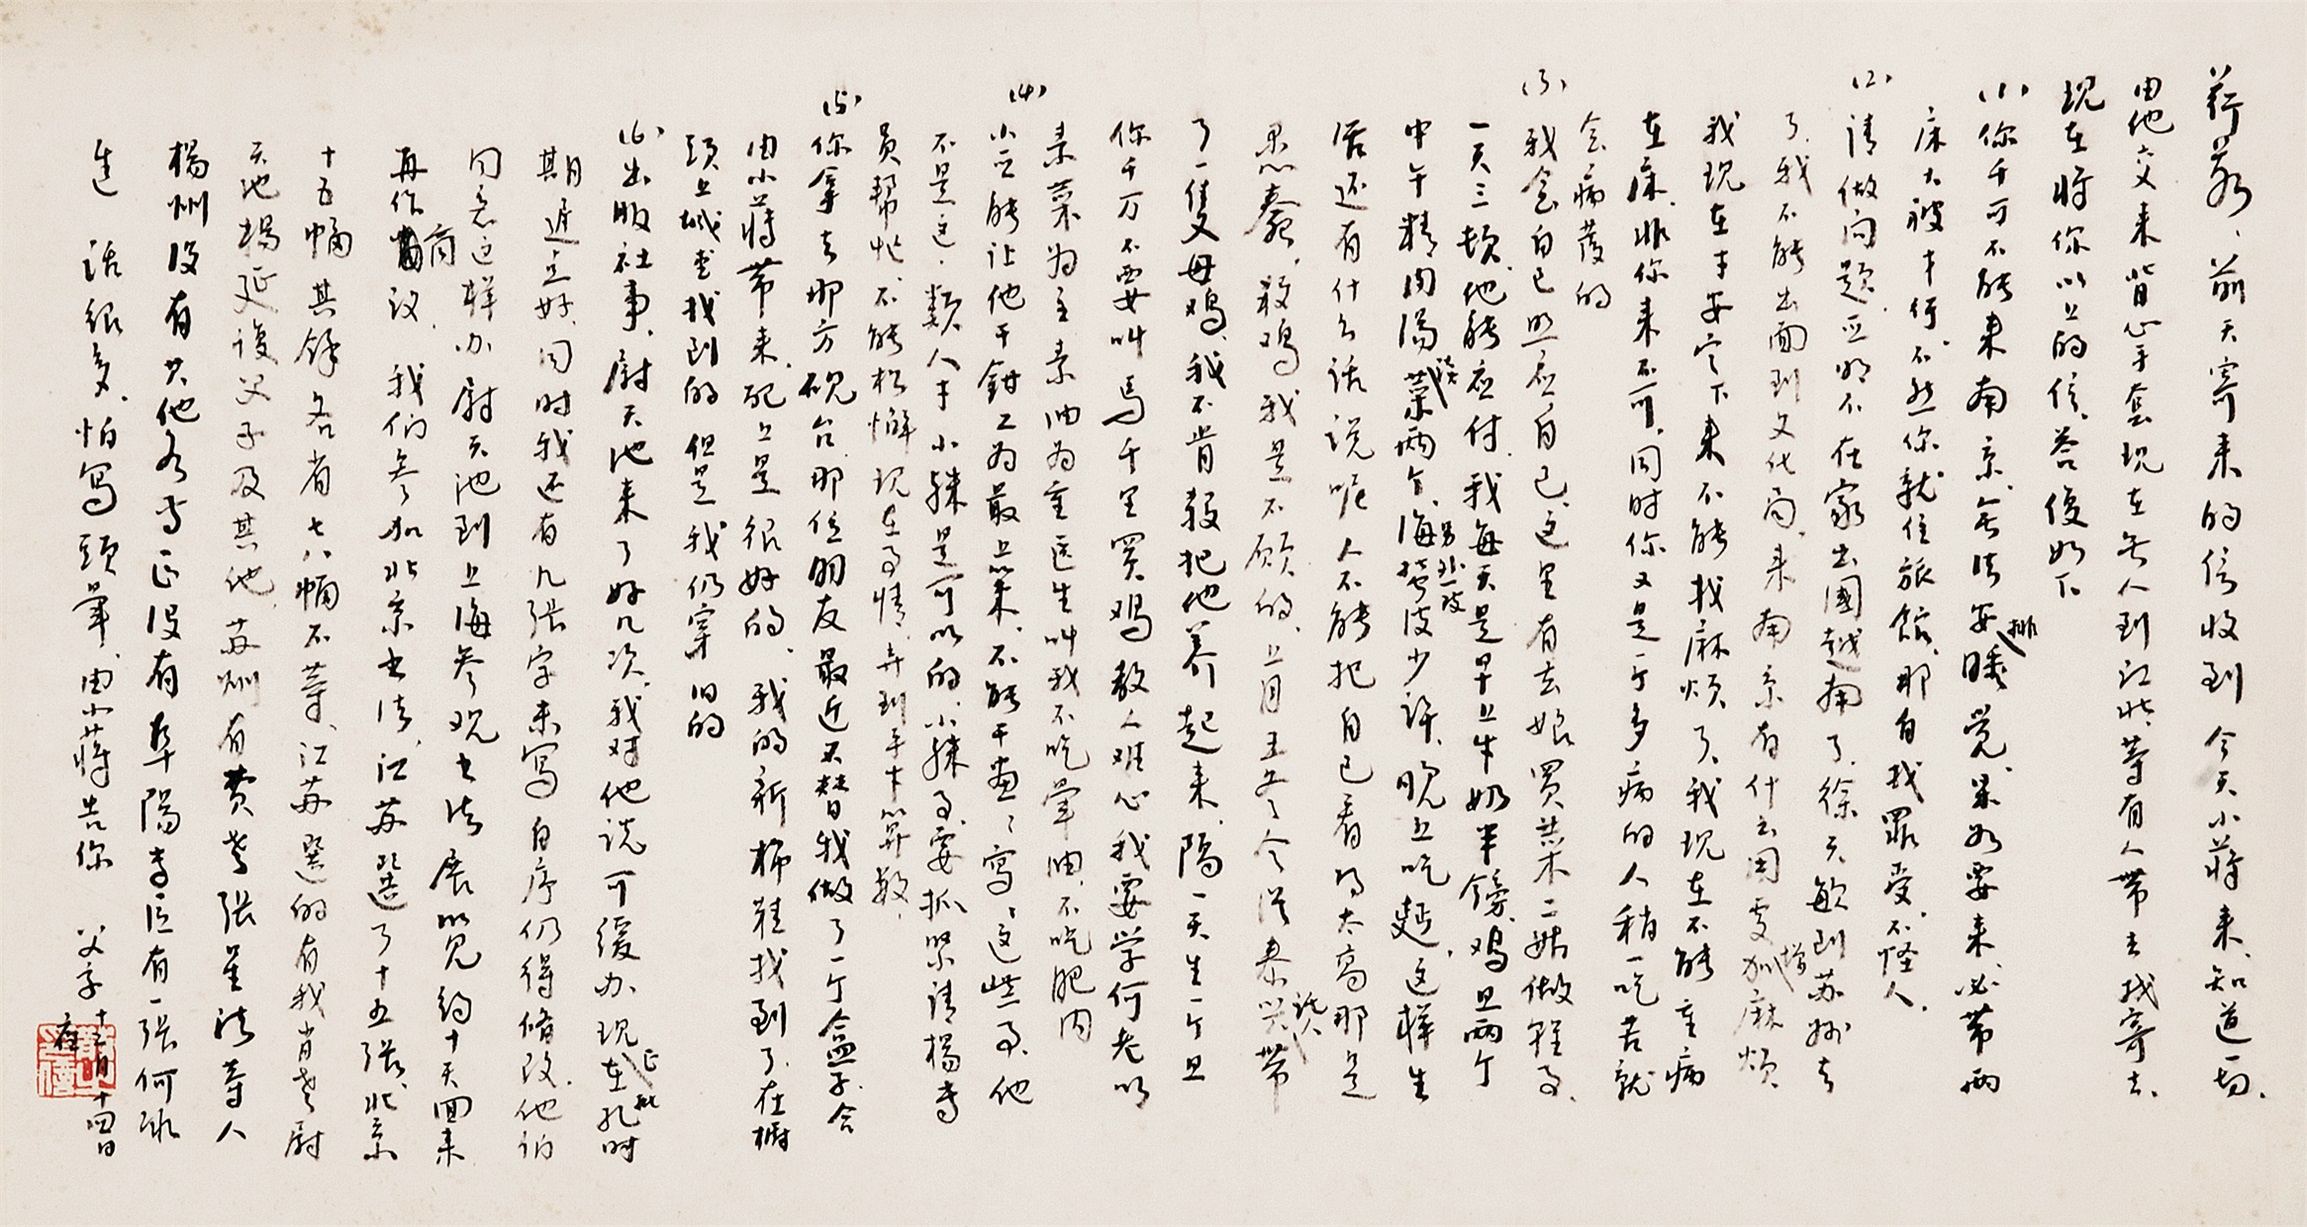 前天寄来的信收到今天小蒋来、知道一切.
由他交来背心手套现在无人到江北、等有人带去或寄去.
现在将你以上的信、答復如下
(1)你千可不能来南京、无法安排睡觉、果如要来、必带两
床大被才行、不然你就住旅馆、那自找罪受、不怪人.
(2)请做问题、亚明不在家出國越南了、徐天敏到苏州去
了、我不能出面到文化局、来南京有什么用处增加麻烦
我现在才安定下来不能找麻烦了、我现在不能重病
在床、非你来不可、同时你又是一个多病的人稍一吃苦就
会病復的
(3)我会自己照应自己、这里有去娘买菜二妹做杂事、
一天三顿、他能应付、我每天是早上牛奶半镑、鸡旦两个
中午精肉汤菜两个、另外海蜇皮少许、晚上吃面、这样生
活还有什么话说呢人不能把自己看得太高那是
愚蠢、殺鸡我是不願的、上月王冬令从泰兴带
了一隻母鸡、我不肯殺把他养起来、隔一天生一个旦
你千万不要叫马千里买鸡教人难心我要学何老以
素菜为主素油为重医生叫我不吃荤油、不吃肥肉
(4)小亚能让他干钳工为最上策、不能干画画写写这些事、他
不是这一類人才小赫是可以的、小赫事要抓紧请楊专
员帮忙、不能松懈现在事情、弄到手才算数、
(5)你拿去那方砚台、那位朋友最近又替我做了一个盒子、合
由小蒋带来、配上是很好的、我的新棉鞋找到了、在橱
頭上城里找到的但是我仍穿旧的
(6)出版社事、尉天池来了好几次、我对他说可缓办现在正批孔时
期迟点好、同时我还有几张字未写自序仍得修改、他们
同意这样办尉天池到上海参观书法展览约十天回来
再作商议、我们参加北京书法、江苏選了十五张、北京
十五幅其餘各省七八幅不等、江苏選的有我肖老尉
天池楊延復父子及其他、苏州有費老张星阶等人
楊州没有其他各专区没有阜陽专区有一张何冰
進 话很多、怕写頭暈、由小蒋告你 父字 十二月十四日夜